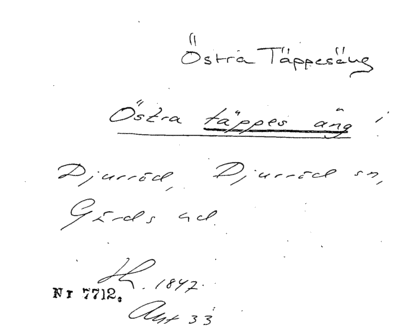 Östra Täppesäng
Östra täppes äng i
Djurröd, Djurröd sn,
Gärds hd.
1847.
Nr 7712.
Akt 33